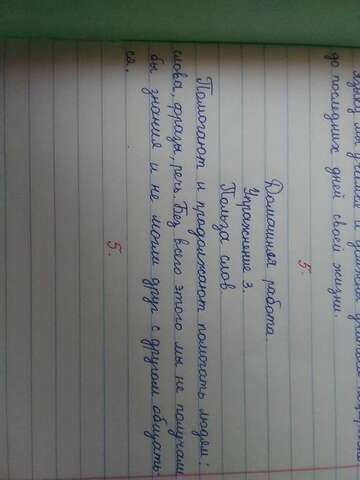 до последних дней своей жизни.
5.
Домашняя работа
Упражнение 3.
Польза слов
Помогают и продолжают помогать людям:
слова, фразы, речь. Без всего этого мы не получали
бы знания и не могли друг с другом общать-
ся.
5.